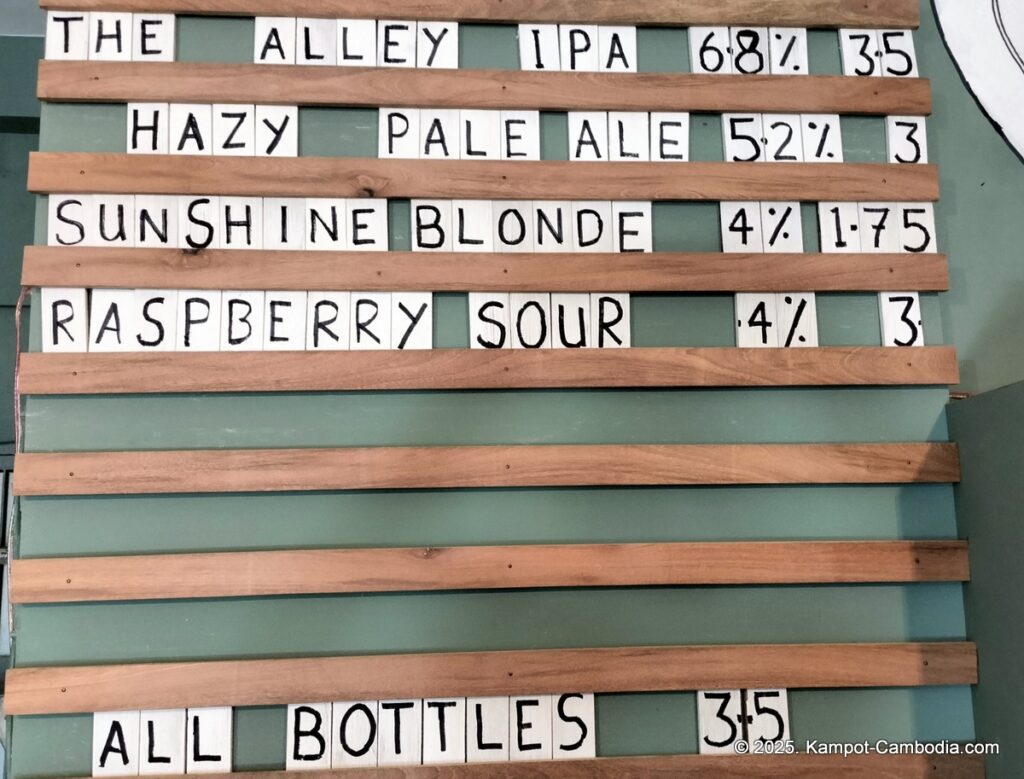 THE ALLEY IPA 6.8% 3.5
HAZY PALE ALE 5.2% 3
SUNSHINE BLONDE 4% 1.75
RASPBERRY SOUR .4% 3.
ALL BOTTLES 3.5
© 2025. Kampot-Cambodia.com